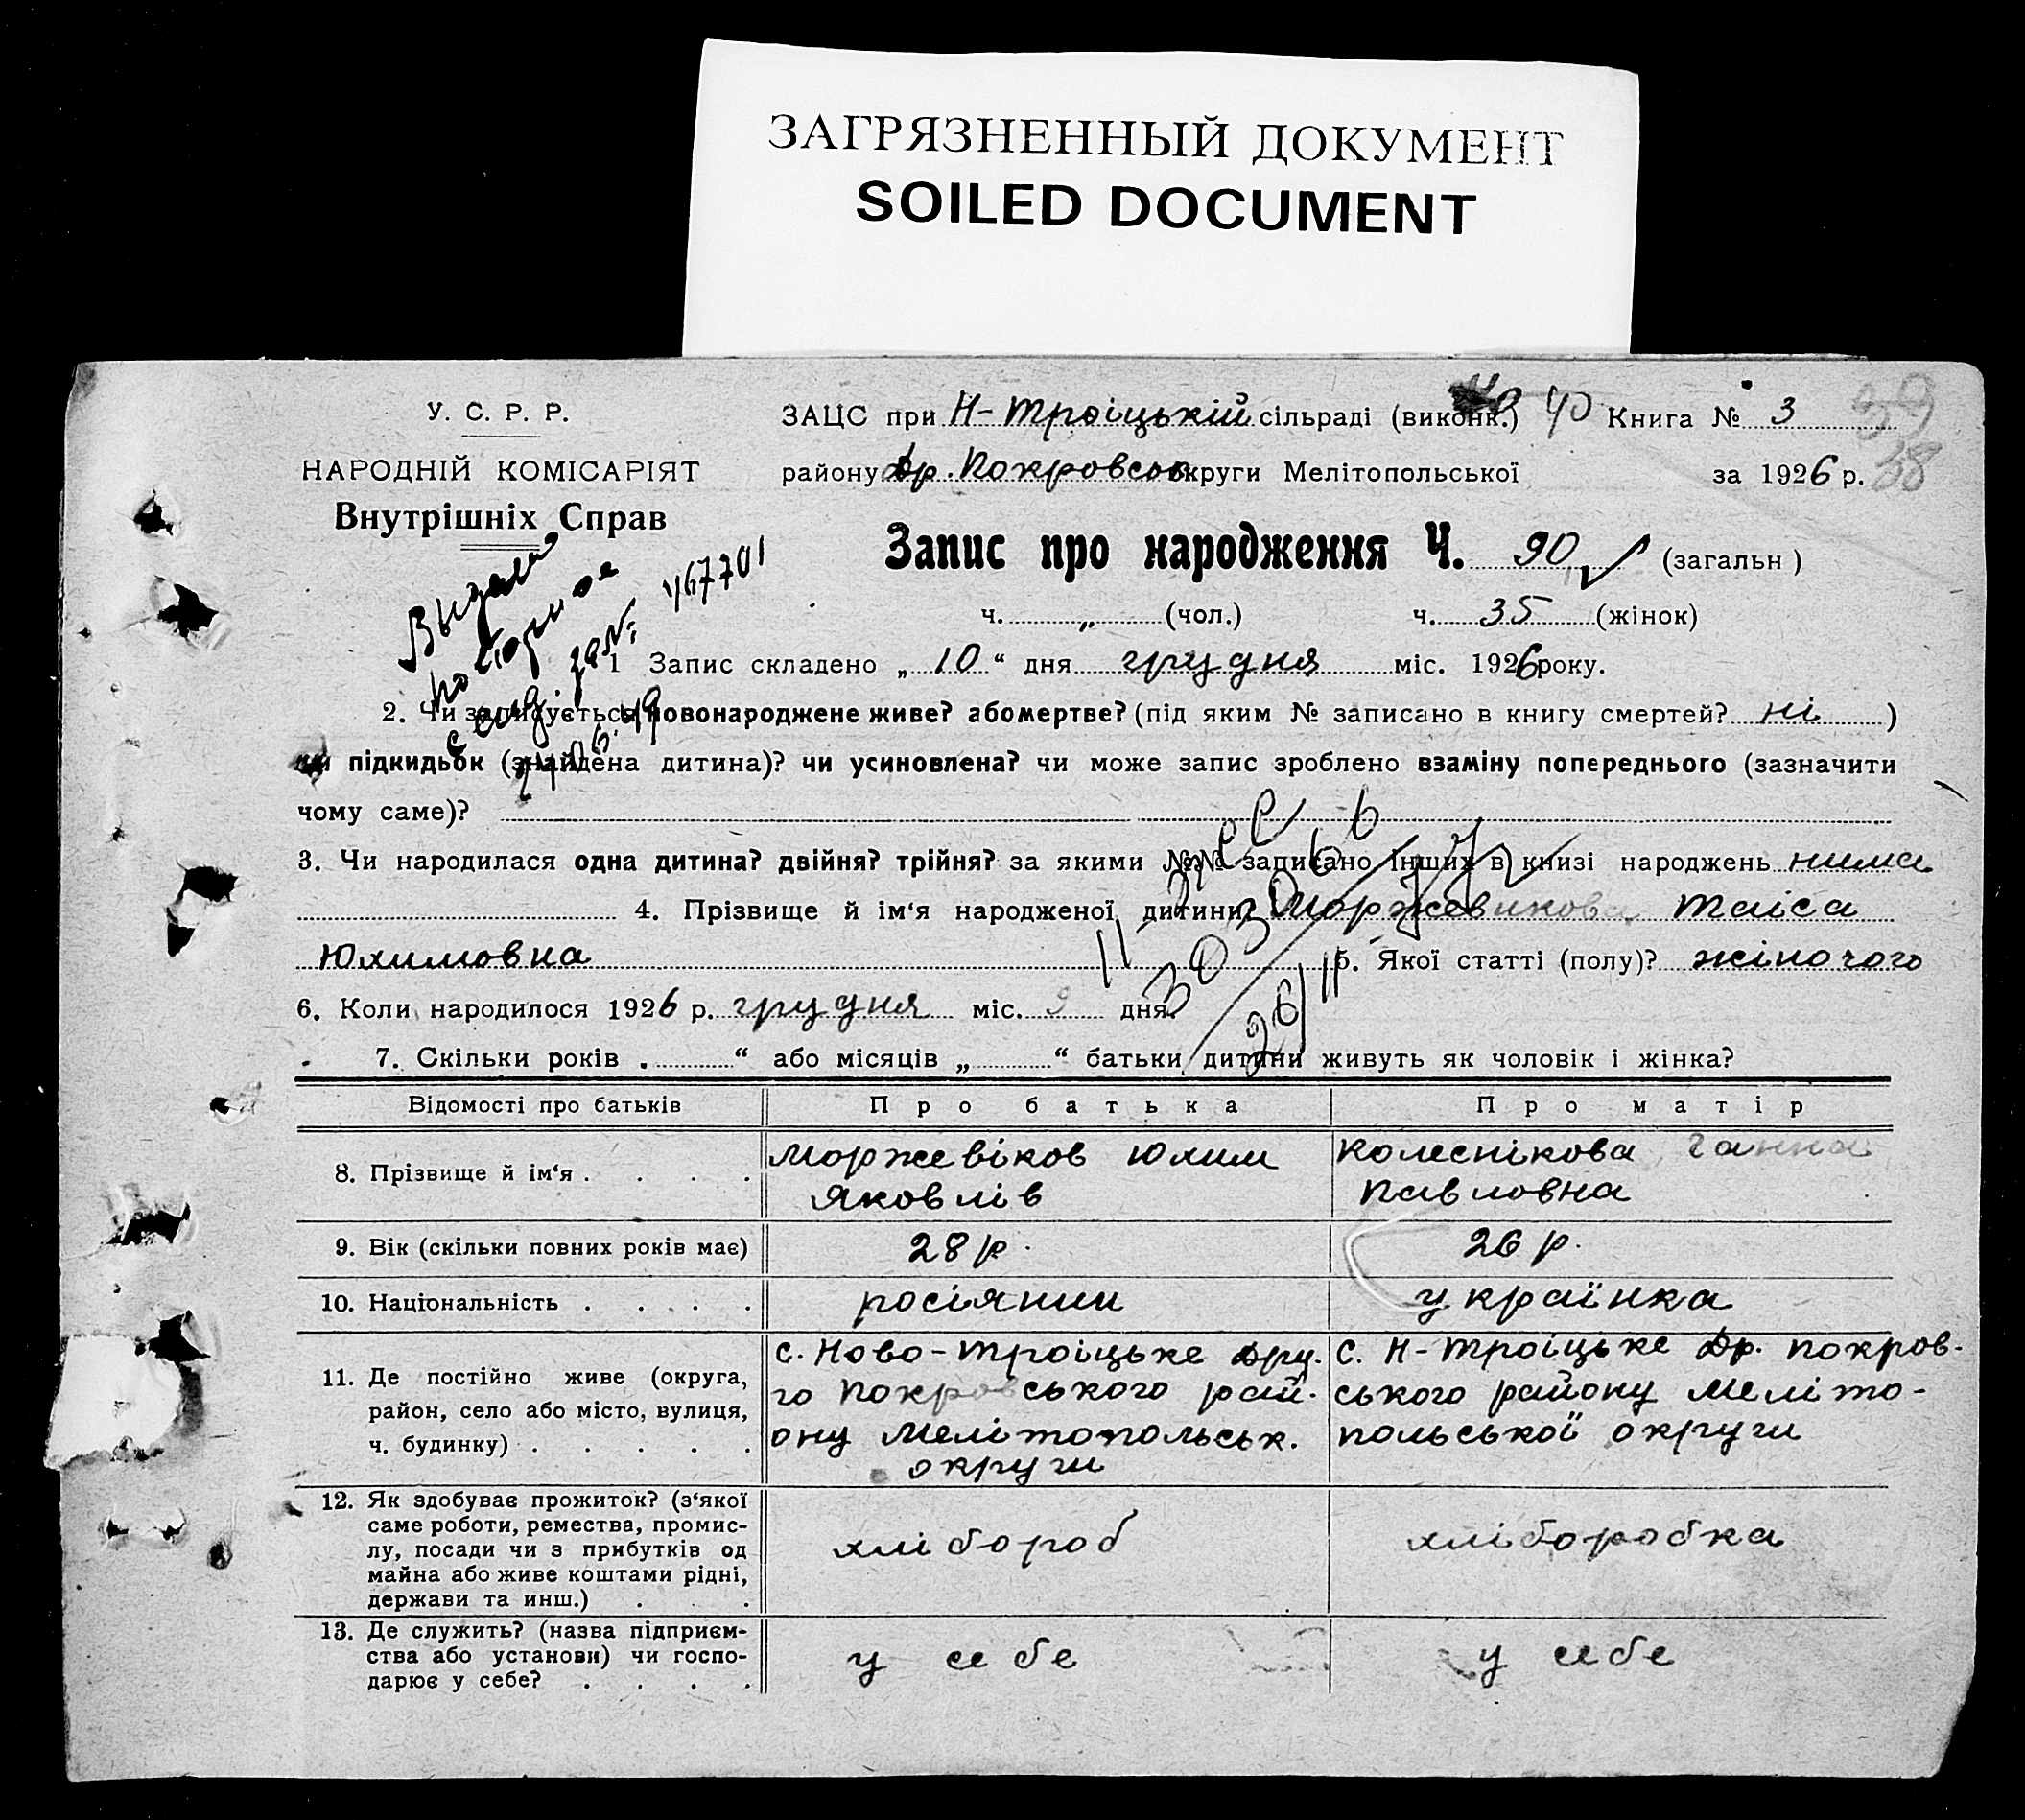 ЗАГРЯЗНЕННЫЙ ДОКУМЕНТ
SOILED DOCUMENT
У. С. Р. Р.
НАРОДНІЙ КОМІСАРІЯТ
Внутрішніх Справ
ЗАЦС при Н-Троїцькій сільраді (виконк.) 40 Книга № 3
району Др. Покровськ округи Мелітопольської за 1926 р.
38
Запис про народження Ч. 90 (загальн)
ч. „ (чол.) ч. 35 (жінок)
Выдано
повторное
свид. зап.
467701
1 Запис складено „ 10 “ дня грудня міс. 1926 року.
2. Чи записується новонароджене живе? або мертве? (під яким № записано в книгу смертей? ні )
чи підкидьок (знайдена дитина)? чи усиновлена? чи може запис зроблено взаміну попереднього (зазначити
чому саме)?
3. Чи народилася одна дитина? двійня? трійня? за якими №№ записано інших в книзі народжень нима
4. Прізвище й ім‘я народженої дитини Моржевикова Таіса
Юхимовна 5. Якої статті (полу)? жіночого
6. Коли народилося 1926 р. грудня міс. 9 дня.
7. Скільки років „ “ або місяців „ “ батьки дитини живуть як чоловік і жінка?
Відомості про батьків Про батька Про матір
8. Прізвище й ім‘я . . . . Моржевіков Юхим Яковлів Колеснікова Ганна Павловна
9. Вік (скільки повних років має) 28 р. 26 р.
10. Національність . . . . росіянин українка
11. Де постійно живе (округа, район, село або місто, вулиця, ч. будинку) . . . . .
с. Ново-Троіцьке Дру.
го Покровського рай.
ону Мелітопольськ.
округи
с. Н-Троіцьке Др. Покров-
ського району Меліто-
польської округи
12. Як здобуває прожиток? (з‘якої
саме роботи, ремества, промис-
лу, посади чи з прибутків од
майна або живе коштами рідні,
держави та инш.) . . .
хлібороб хліборобка
13. Де служить? (назва підприєм-
ства або установи) чи госпо-
дарює у себе? . . . .
у себе у себе